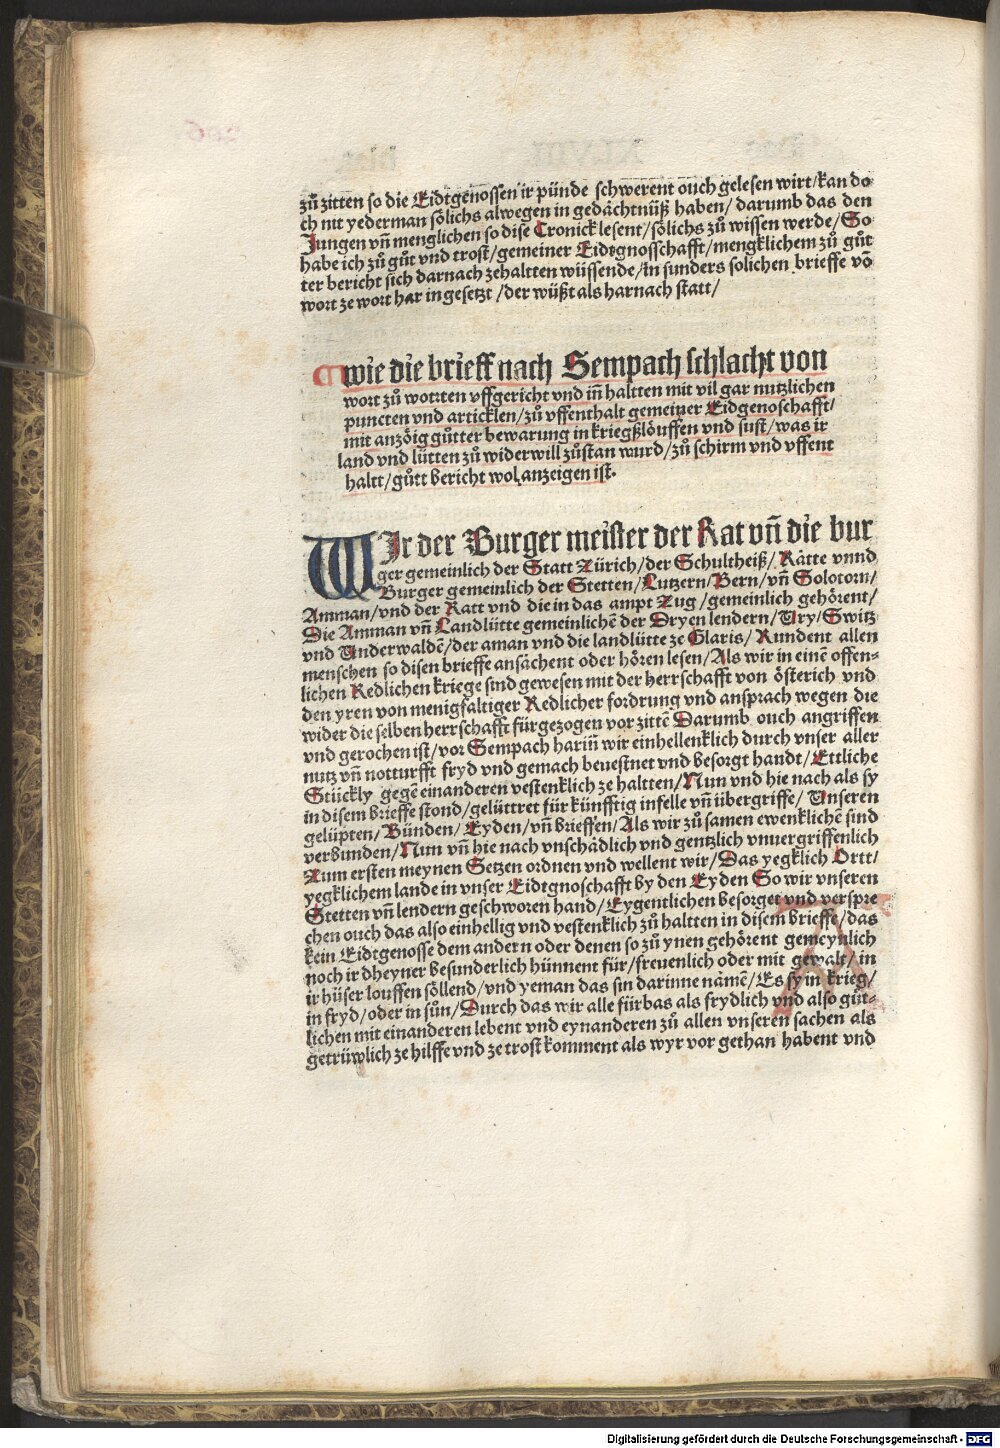 zů zitten so die Eidtgenossen ir pünde schwerent ouch gelesen wirt/kan do
ch nit yederman sölichs alwegen in gedächtnüß haben/ darumb das den
Jungen vn̄ menglichen so dise Cronick lesent/sölichs zů wissen werde/So
habe ich zů gůt vnd trost/gemeiner Eidtgnosschafft/mengklichem zů gůt
ter bericht sich darnach zehaltten wüssende/in sunders solichen brieffe vō
wort ze wort har in gesetzt /der wüßt als harnach statt/
wie die brieff nach Sempach schlacht von
wort zů wortten vffgericht vnd in̄ haltten mit vil gar nutzlichen
puncten vnd articklen/zů vffenthalt gemeiner Eidgenoschafft/
mit anzöig gůtter bewarung in kriegßlöuffen vnd sust/was ir
land vnd lütten zů widerwill zůstan wurd/zů schirm vnd vffent
haltt/gůtt bericht wol anzeigen ist.
WJr der Burger meister der Rat vn̄ die bur
ger gemeinlich der Statt Zürich/der Schultheiß/ Rätte vnnd
Burger gemeinlich der Stetten/Lutzern/Bern/vn̄ Solotorn/
Amman/vnd der Ratt vnd die in das ampt Zug/gemeinlich gehörent/
Die Amman vn̄ Landlütte gemeinlichē der Dryen lendern/Vry/Switz
vnd Vnderwaldē/der aman vnd die landlütte ze Glaris/ Kundent allen
menschen so disen brieffe ansächent oder hören lesen/Als wir in einē offen-
lichen Redlichen kriege sind gewesen mit der herrschafft von österich vnd
den yren von menigfaltiger Redlicher fordrung vnd ansprach wegen die
wider die selben herrschafft für gezogen vor zittē Darumb ouch angriffen
vnd gerochen ist/vor Sempach harin̄ wir einhellenklich durch vnser aller
nutz vn̄ notturfft fryd vnd gemach beuestnet vnd besorgt handt/Ettliche
Stückly gegē einanderen vestenklich ze haltten/Nun vnd hie nach als sy
in disem brieffe stond/gelüttret für künfftig infelle vn̄ übergriffe/ Vnseren
gelüpten/Bünden/Eyden/vn̄ brieffen/Als wir zů samen ewenklichē sind
verbunden/Nun vn̄ hie nach vnschädlich vnd gentzlich vnuergriffenlich
Zum ersten meynen Setzen ordnen vnd wellent wir/Das yegklich Ortt/
yegklichem lande in vnser Eidtgnoschafft by den Eyden So wir vnseren
Stetten vn̄ lendern geschworen hand/Eygentlichen besorget vnd verspre
chen ouch das also einhellig vnd vestenklich zů haltten in disem brieffe/das
kein Eidtgenosse dem andern oder denen so zů ynen gehörent gemeynlich
noch ir dheyner besunderlich hünnent für/freuenlich oder mit gewalt/in
ir hüser louffen söllend/vnd yeman das sin darinne nämē/Es sy in krieg/
in fryd/oder in sůn/Durch das wir alle fürbas als frydlich vnd also gůt-
lichen mit einanderen lebent vnd eynanderen zů allen vnseren sachen als
getrüwlich ze hilffe vnd ze trost komment als wyr vor gethan habent vnd
Digitalisierung gefördert durch die Deutsche Forschungsgemeinschaft - DFG